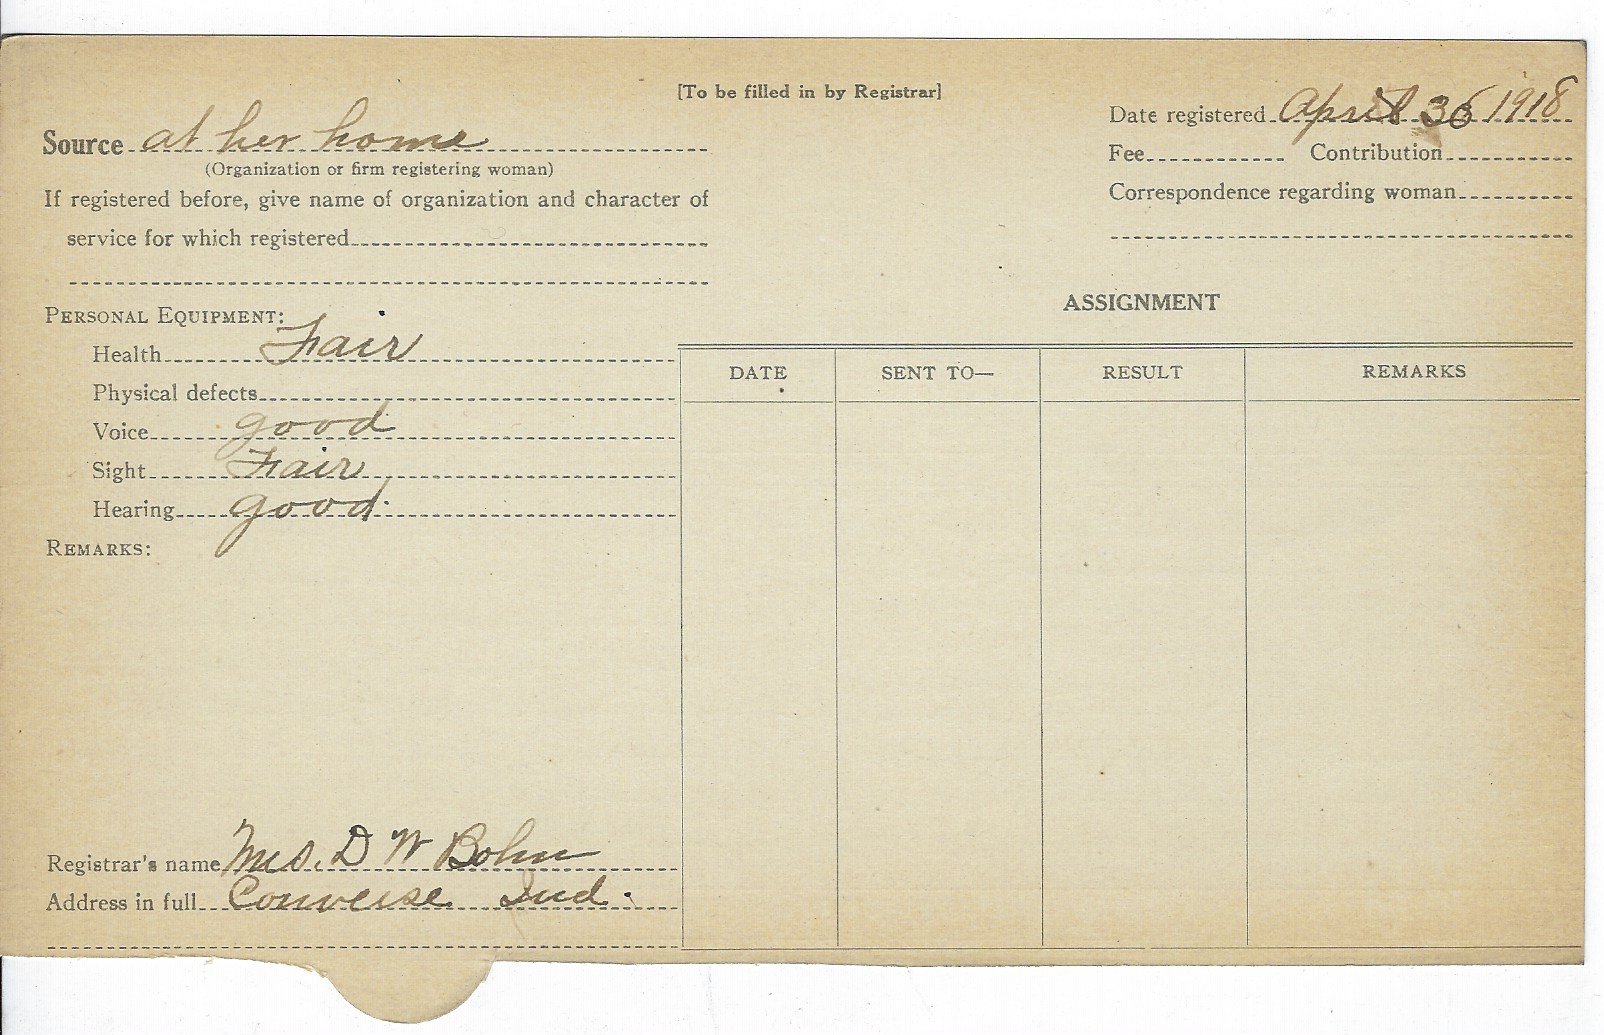 [To be filled in by Registrar]
Source at her home
(Organization or firm registering woman)
If registered before, give name of organization and character of
service for which registered
Date registered April 30 1918
Fee Contribution
Correspondence regarding woman
PERSONAL EQUIPMENT:
Health Fair
Physical defects
Voice good
Sight Fair
Hearing good
REMARKS:
Registrar's name Mrs. D W Bohn
Address in full Converse Ind.
ASSIGNMENT
DATE SENT TO— RESULT REMARKS